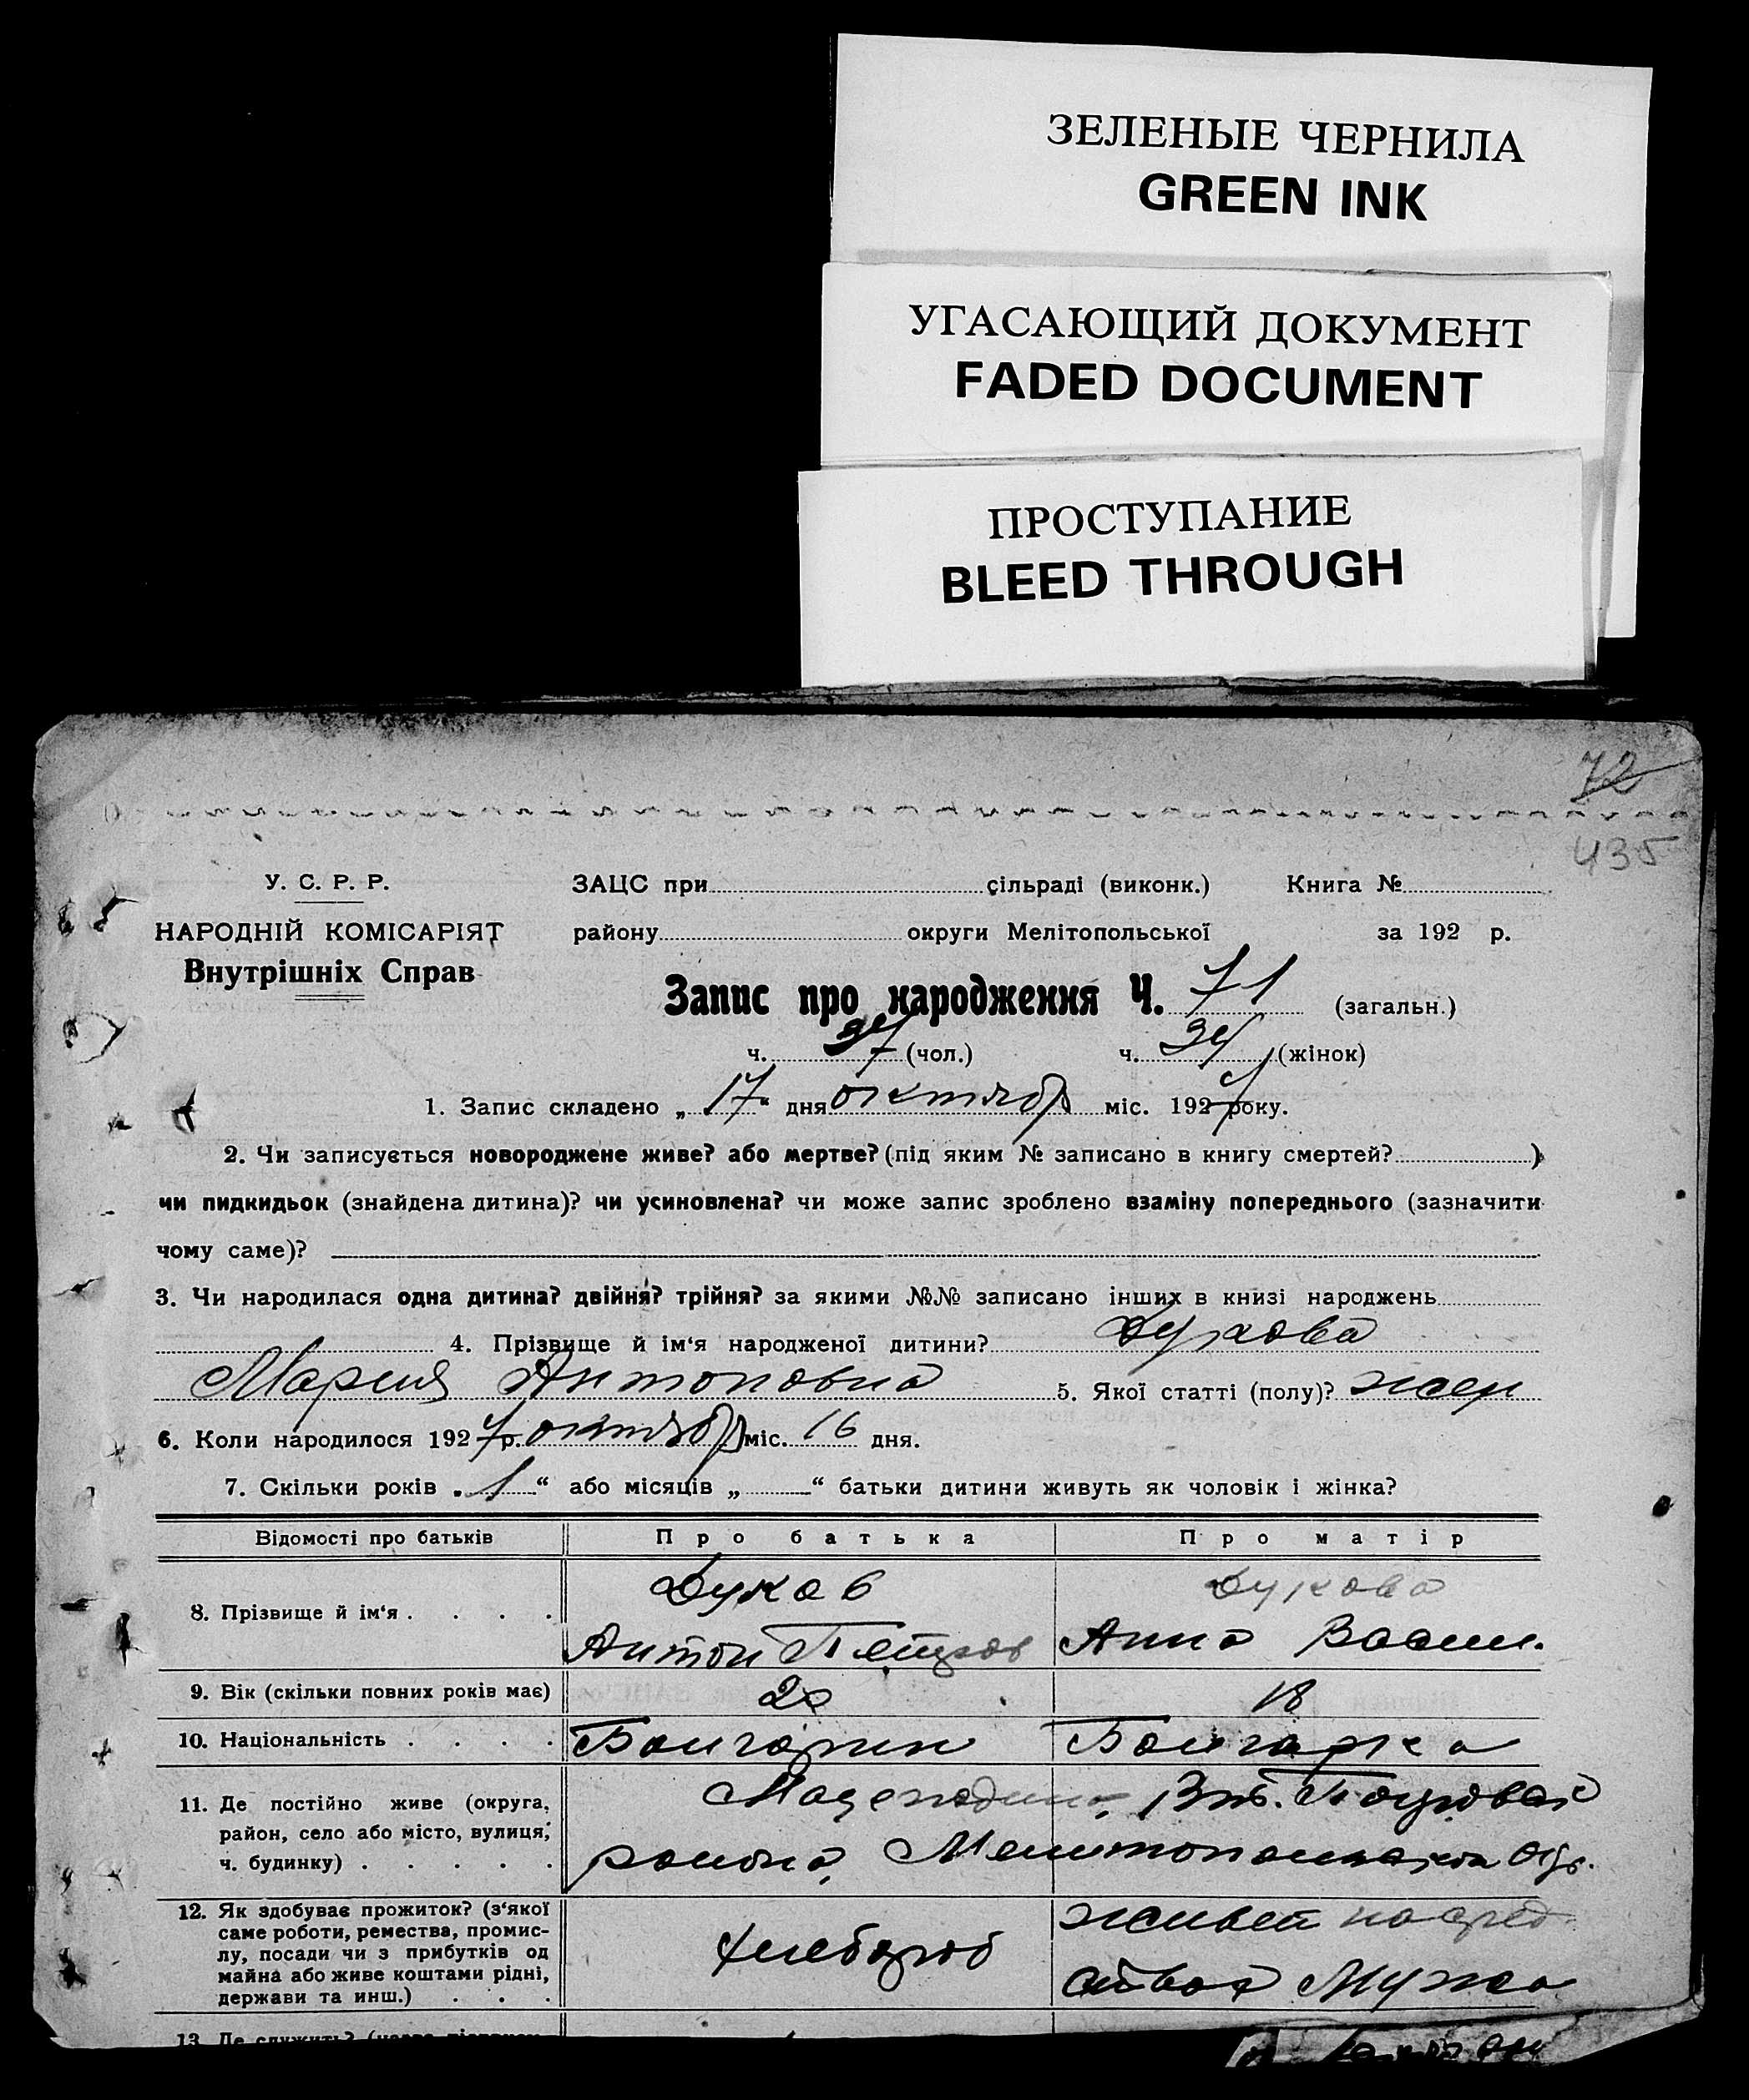 ЗЕЛЕНЫЕ ЧЕРНИЛА
GREEN INK
УГАСАЮЩИЙ ДОКУМЕНТ
FADED DOCUMENT
ПРОСТУПАНИЕ
BLEED THROUGH
72
435
У. С. Р. Р.
НАРОДНІЙ КОМІСАРІЯТ
Внутрішніх Справ
ЗАЦС при сільраді (виконк.) Книга №
району округи Мелітопольської за 192 р.
Запис про народження Ч. 71 (загальн.)
ч. 37 (чол.) ч. 34 (жінок)
1. Запис складено „ 17 “ дня октября міс. 1927 року.
2. Чи записується новороджене живе? або мертве? (під яким № записано в книгу смертей? )
чи пидкидьок (знайдена дитина)? чи усиновлена? чи може запис зроблено взаміну попереднього (зазначити
чому саме)?
3. Чи народилася одна дитина? двійня? трійня? за якими №№ записано інших в книзі народжень
4. Прізвище й ім‘я народженої дитини? Дукова
Мария Антоновна 5. Якої статті (полу)? жен
6. Коли народилося 1927 р. октября міс. 16 дня.
7. Скільки років „ 1 “ або місяців „ “ батьки дитини живуть як чоловік і жінка?
Відомості про батьків Про батька Про матір
8. Прізвище й ім‘я . . . . Дуков Дукова
Антон Петров Анна Васил.
9. Вік (скільки повних років має) 20 18
10. Національність . . . . Болгарин Болгарка
11. Де постійно живе (округа,
район, село або місто, вулиця,
ч. будинку) . . . . .
района, Мелитопольской Окр.
12. Як здобуває прожиток? (з‘якої
саме роботи, ремества, промис-
лу, посади чи з прибутків од
майна або живе коштами рідні,
держави та инш.) . . .
хлебороб
живет на сред
ства Мужа
13. Де служить?